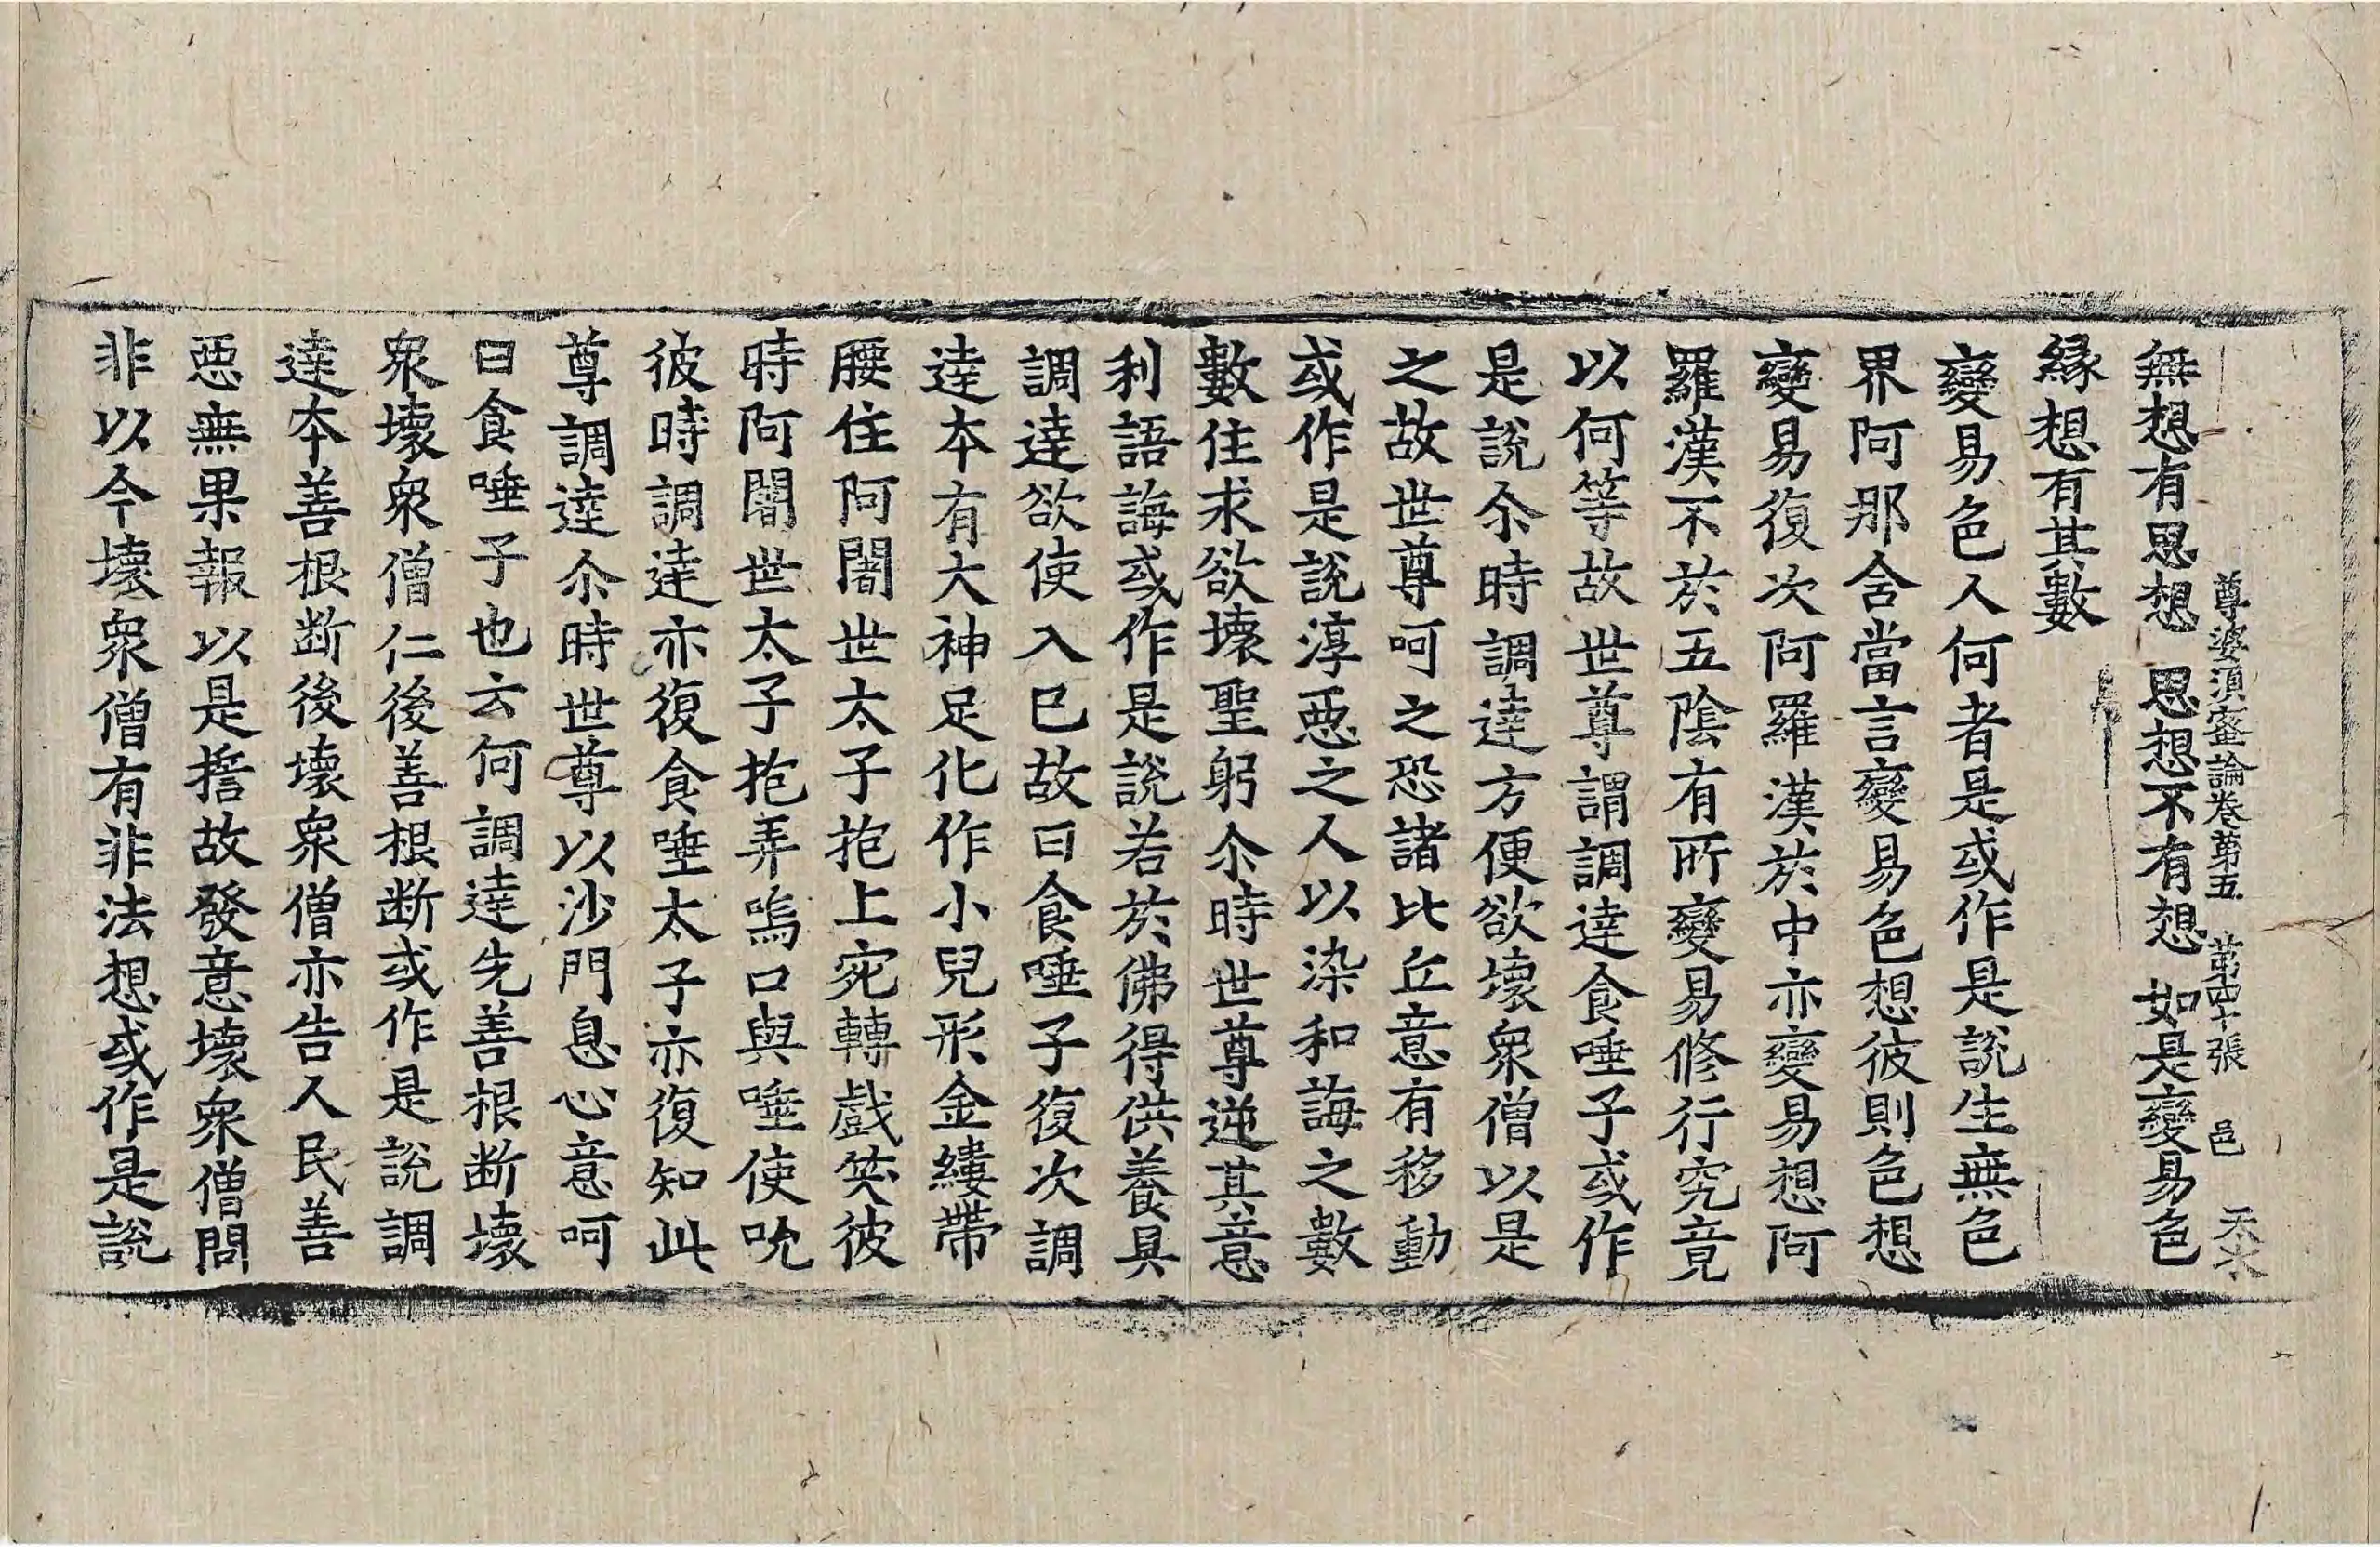 尊婆須蜜論卷第五　第四十張　邑　天水
無想有思想　思想不有想　如是變易色
緣想有其數
變易色人何者是或作是說生無色
界阿那舍當言變易色想彼則色想
變易復次阿羅漢於中亦變易想阿
羅漢不於五陰有所變易修行究竟
以何等故世尊謂調達食唾子或作
是說尒時調達方便欲壞衆僧以是
之故世尊呵之恐諸比丘意有移動
或作是說淳惡之人以染和誨之數
數住求欲壞聖躬尒時世尊逆其意
利語誨或作是說若於佛得供養具
調達欲使入已故曰食唾子復次調
達本有大神足化作小兒形金縷帶
腰住阿闍世太子抱上宛轉戲笑彼
時阿闍世太子抱弄嗚口與唾使吮
彼時調達亦復食唾太子亦復知此
尊調達尒時世尊以沙門息心意呵
曰食唾子也云何調達先善根斷壞
衆壞衆僧仁後善根斷或作是說調
達本善根斷後壞衆僧亦告人民善
惡無果報以是捨故發意壞衆僧問
非以今壞衆僧有非法想或作是說